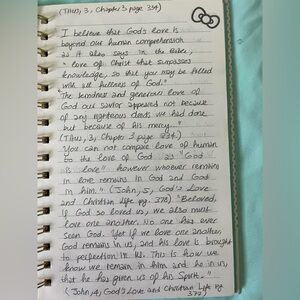 (Titus, 3, Chapter 3 page 234)
I believe that God's love is
beyond our human comprehension
as it also says in the Bible,
"love of Christ that surpasses
knowledge, so that you may be filled
with all fullness of God."
"The kindness and generous love of
God our savior appeared not because
of any righteous deeds we had done
but because of his mercy..."
(Titus, 3, Chapter 2 page 234)
You can not compare love of human
to the love of God as "God
is love" however whoever remains
in love remains in God and God
in him." (John, 5, God's Love
and Christian Life pg. 378) "Beloved,
if God so loved us, we also must
love one another. No one has ever
seen God. Yet if we love one another,
God remains in us, and his love is brought
to perfection in us. This is how we
know we remain in him and he in us,
that he has given us of his Spirit."
(John, 4, God's Love and Christian Life pg
372)